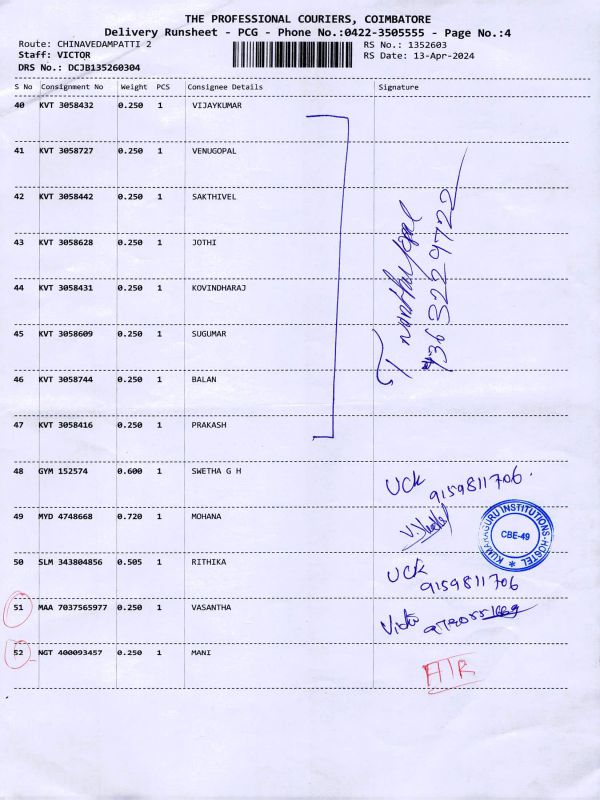 THE PROFESSIONAL COURIERS, COIMBATORE
Delivery Runsheet - PCG - Phone No.:0422-3505555 - Page No.:4
Route: CHINAVEDAMPATTI 2 RS No.: 1352603
Staff: VICTOR RS Date: 13-Apr-2024
DRS No.: DCJB135260304
S No Consignment No Weight PCS Consignee Details Signature
40 KVT 3058432 0.250 1 VIJAYKUMAR
41 KVT 3058727 0.250 1 VENUGOPAL
42 KVT 3058442 0.250 1 SAKTHIVEL
43 KVT 3058628 0.250 1 JOTHI
44 KVT 3058431 0.250 1 KOVINDHARAJ
45 KVT 3058609 0.250 1 SUGUMAR
46 KVT 3058744 0.250 1 BALAN
47 KVT 3058416 0.250 1 PRAKASH
48 GYM 152574 0.600 1 SWETHA G H
UCK
9159811706.
49 MYD 4748668 0.720 1 MOHANA
KUMARAGURU INSTITUTIONS-HOSTEL
CBE-49
50 SLM 343804856 0.505 1 RITHIKA
UCK
9159811706
51 MAA 7037565977 0.250 1 VASANTHA
52 NGT 400093457 0.250 1 MANI